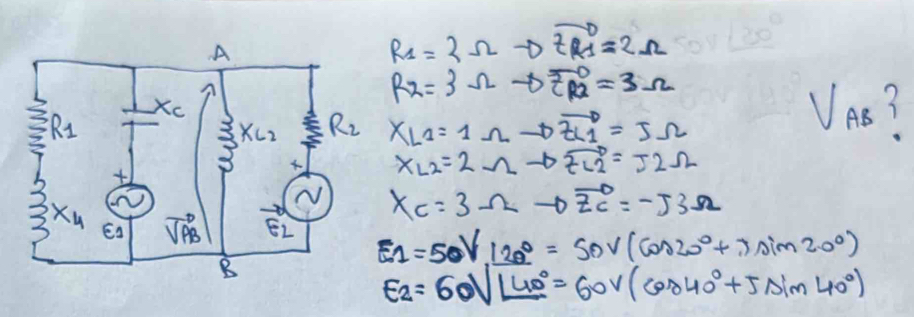 A
R1
XL1
XC
+
E1
VAB
XL2
R2
+
E2
B
R1 = 2 Ω → ZR1 = 2 Ω
R2 = 3 Ω → ZR2 = 3 Ω
XL1 = 1 Ω → ZL1 = J Ω
XL2 = 2 Ω → ZL2 = J2 Ω
XC = 3 Ω → ZC = -J3 Ω
E1 = 50V |20° = 50V (cos20° + J sin 20°)
E2 = 60V |40° = 60V (cos40° + J sin 40°)
VAB?